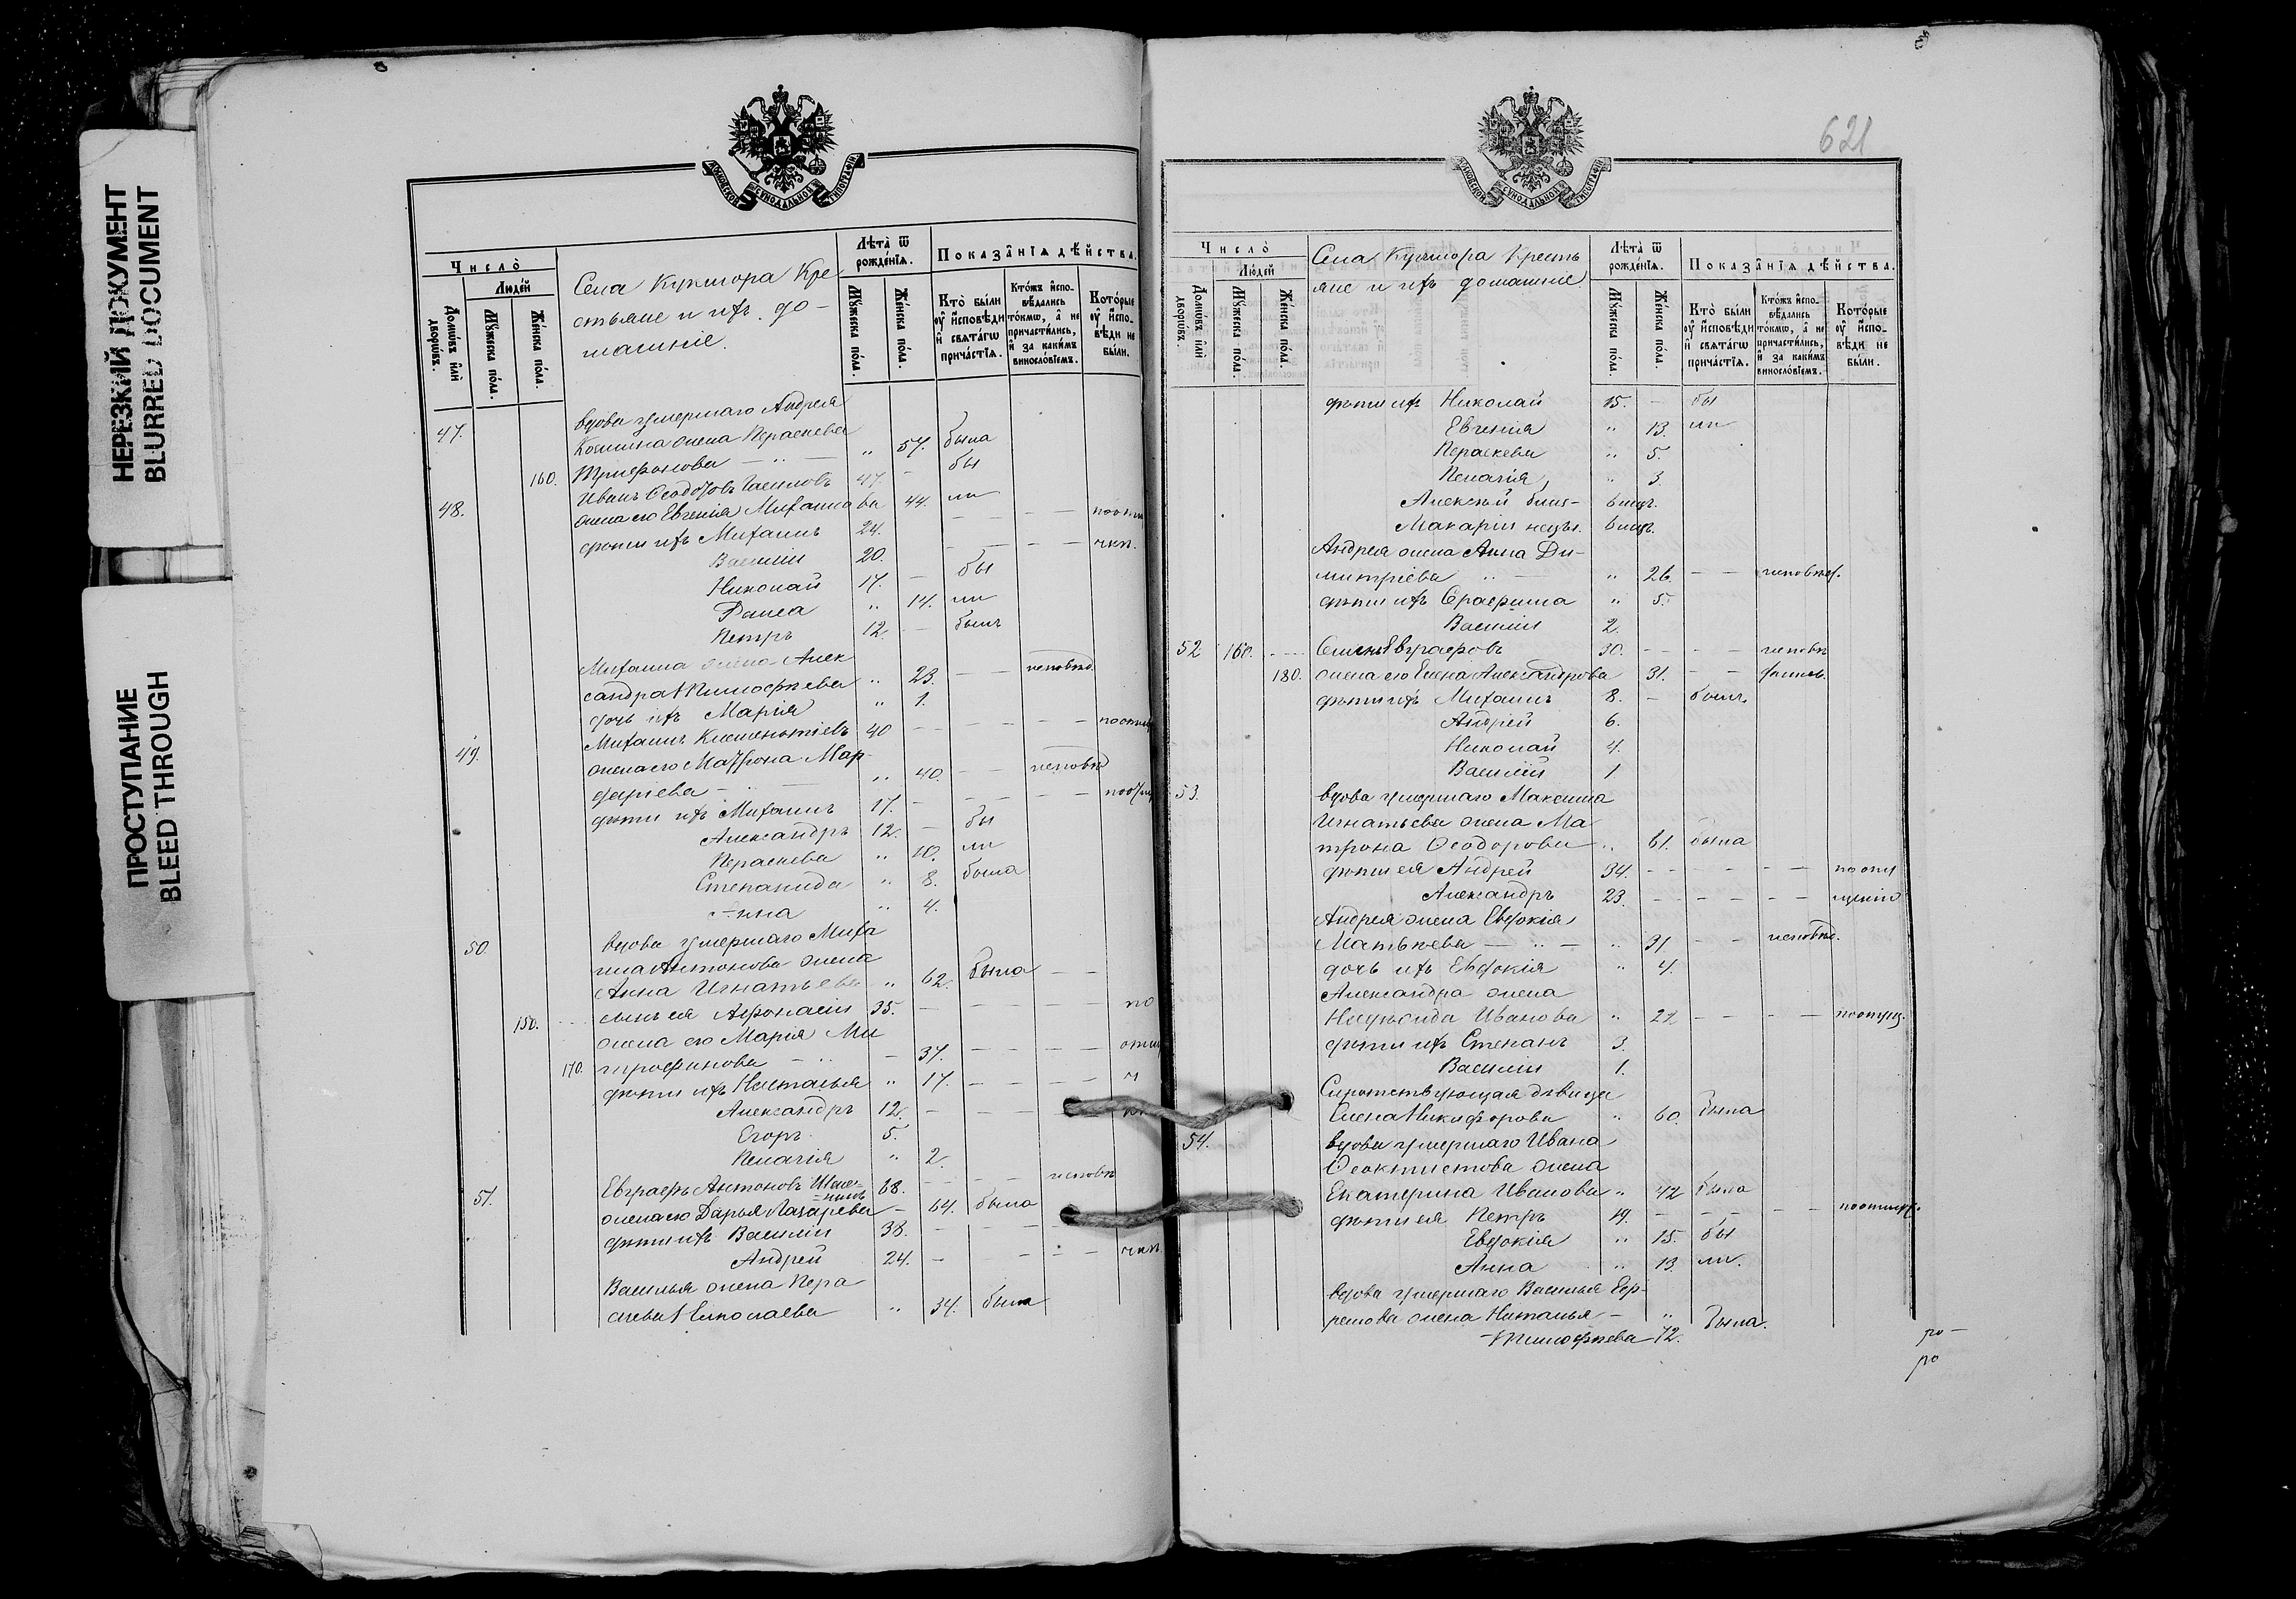 НЕРЕЗКИЙ ДОКУМЕНТ
BLURRED DOCUMENT
ПРОСТУПАНИЕ
BLEED THROUGH
МОСКОВСКОЙ СѴНОДАЛЬНОЙ ТИПОГРАФІИ
Число̀
Люде́й
Домѡ́въ и҆лѝ дворѡ́въ.
Мꙋ́жеска по́ла.
Же́нска по́ла.
Села Кукшора Кре
стьяне и ихъ до-
машніе.
Лѣ́та ѿ рожде́нїѧ.
Мꙋ́жеска по́ла.
Же́нска по́ла.
Показа̑нїѧ дѣ́йства.
Кто̀ бы́ли оу҆ и҆́сповѣди и҆ свѧта́гѡ прича́стїѧ.
Кто́жъ и҆спо-вѣ́дались то́кмѡ, а҆ не причасти́лись, и҆ за каки́мъ винослѡ́вїемъ.
Кото́рые оу҆ и҆́спо-вѣди не бы́ли.
47. вдова умершаго Андрея
Космина жена Параскева
160. Трифонова — " — " 57. была
48. Иванъ Ѳеодоровъ 47. — бы
жена его Евгенія Михаилова 44. ли
дѣти ихъ Михаилъ 24. — — — —
Василій 20. — — — —
Николай 17. — бы
Раиса " 14. ли
Петръ 12. — былъ
Михаила жена Алек
сандра Тимофѣева " 23. — — исповѣд
дочь ихъ Марія " 1.
49. Михаилъ Климентіевъ 40 — — — —
жена его Матрона Мар-
даріева — " 40. — — исповѣд
дѣти ихъ Михаилъ 17. — — — —
Александръ 12. — бы
Параскева " 10. ли
Степанида " 8. была
Анна " 4.
50. вдова умершаго Миха
ила Антонова жена
Анна Игнатьева " 62. была — —
150. сынъ ея Афонасій 35. — — — — по
жена его Марія Ми
170. трофанова — " — 37. — — — —
дѣти ихъ Наталья " 17. — — — —
Александръ 12. — — — —
Егоръ 5.
Пелагія " 2.
51. Евграфъ Антоновъ 68. — — — исповѣ
жена его Дарья Лазарева — 64. была
дѣти ихъ Василій 38. — — — —
Андрей 24. — — — —
Василья жена Пара
скева Николаева " 34. была
621
МОСКОВСКОЙ СѴНОДАЛЬНОЙ ТИПОГРАФІИ
Число̀
Люде́й
Домѡ́въ и҆лѝ дворѡ́въ.
Мꙋ́жеска по́ла.
Же́нска по́ла.
Села Кукшора Кресть
яне и ихъ домашніе
Лѣ́та ѿ рожде́нїѧ.
Мꙋ́жеска по́ла.
Же́нска по́ла.
Показа̑нїѧ дѣ́йства.
Кто̀ бы́ли оу҆ и҆́сповѣди и҆ свѧта́гѡ прича́стїѧ.
Кто́жъ и҆спо-вѣ́дались то́кмѡ, а҆ не причасти́лись, и҆ за каки́мъ винослѡ́вїемъ.
Кото́рые оу҆ и҆́спо-вѣди не бы́ли.
дѣти ихъ Николай 15. — бы
Евгенія " 13. ли
Параскева " 5.
Пелагія " 3.
Алексѣй близ-
Макарій нецы.
Андрея жена Анна Ди-
митріева " — " 26. — — исповѣд.
дѣти ихъ Серафима " 5.
Василій 2.
52 160. Евграфовъ 30. — — — исповѣ
180. жена его Елена Александрова 31. — —
дѣти ихъ Михаилъ 8. — былъ.
Андрей 6.
Николай 4.
Василій 1
53. вдова умершаго Максима
Игнатьева жена Ма
трона Ѳеодорова " 61. была
дѣти ея Андрей 34. — — — — — по отлу
Александръ 23. — — — — —
Андрея жена Евдокія
Матвѣева — " — " 31 — — исповѣд.
дочь ихъ Евдокія " 4.
Александра жена
Иванова " 21. — — — — по отлуч.
дѣти ихъ Степанъ 3.
Василій 1.
Сиротствующая дѣвица
Елена Никифорова " 60. была
54. вдова умершаго Ивана
Ѳеоктистова жена
Екатерина Иванова " 42 была
дѣти ея Петръ 19. — — — —
Евдокія " 15. бы
Анна " 13. ли.
вдова умершаго Василья
жена Наталья — "
Тимофѣева 72. была.